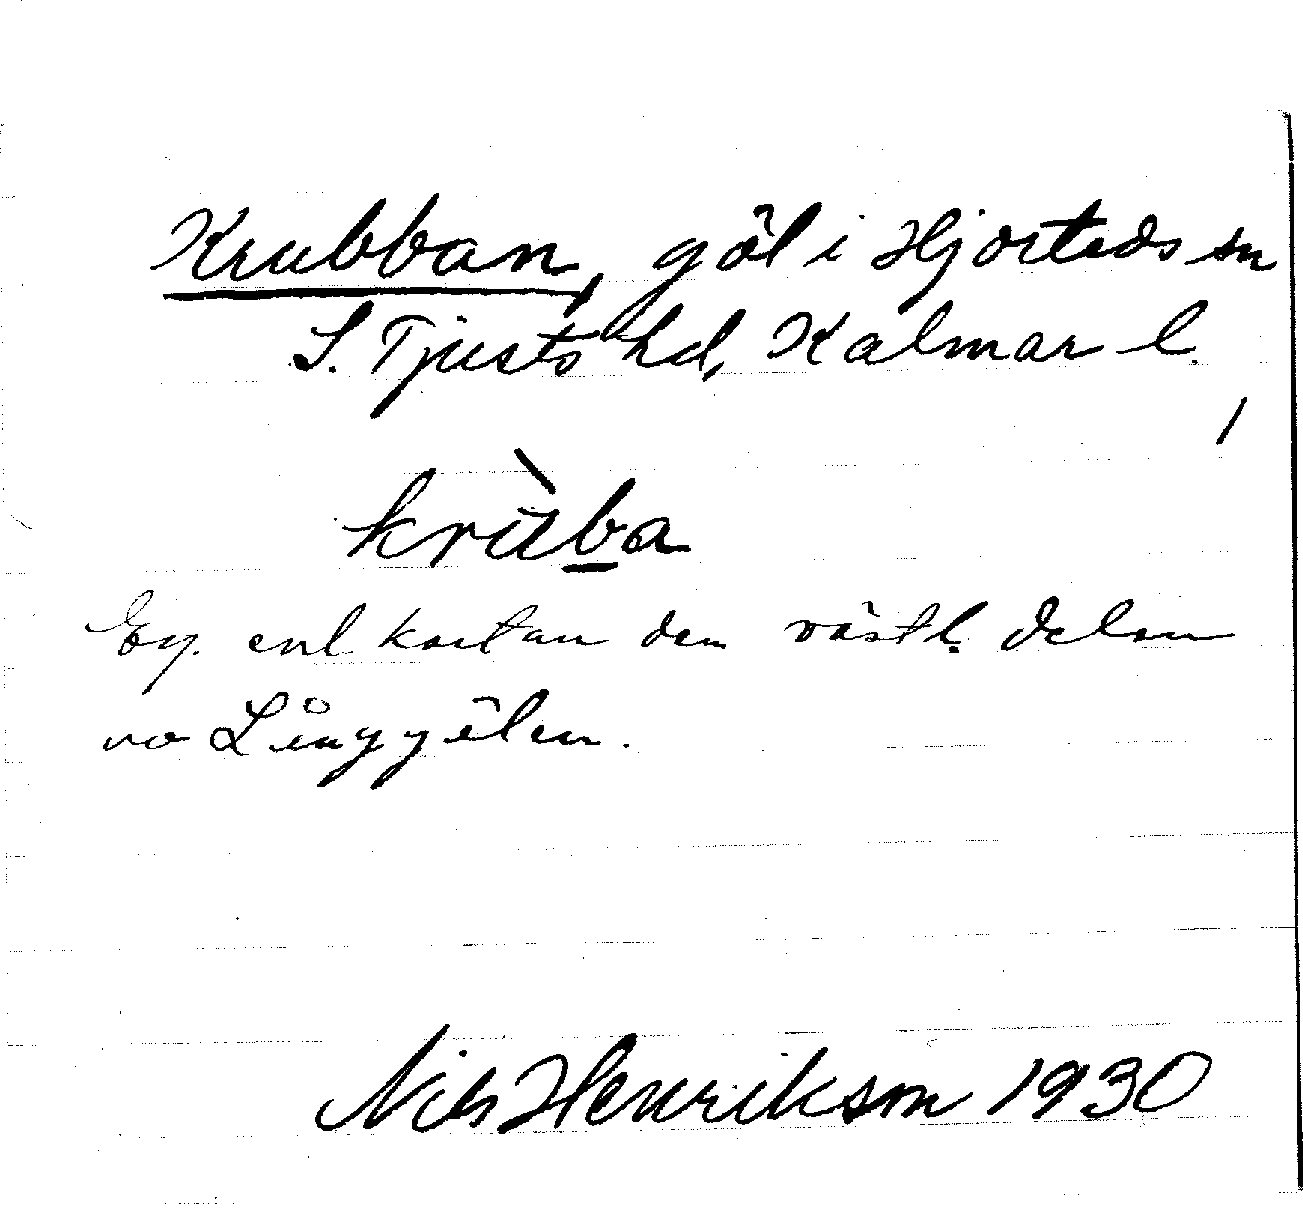 Krubban, göl i Hjorteds sn
S. Tjusts hd, Kalmar l.
/
krùba
Eg. enl kartan den västl. delen
av Långgölen.
Nils Henrikson 1930